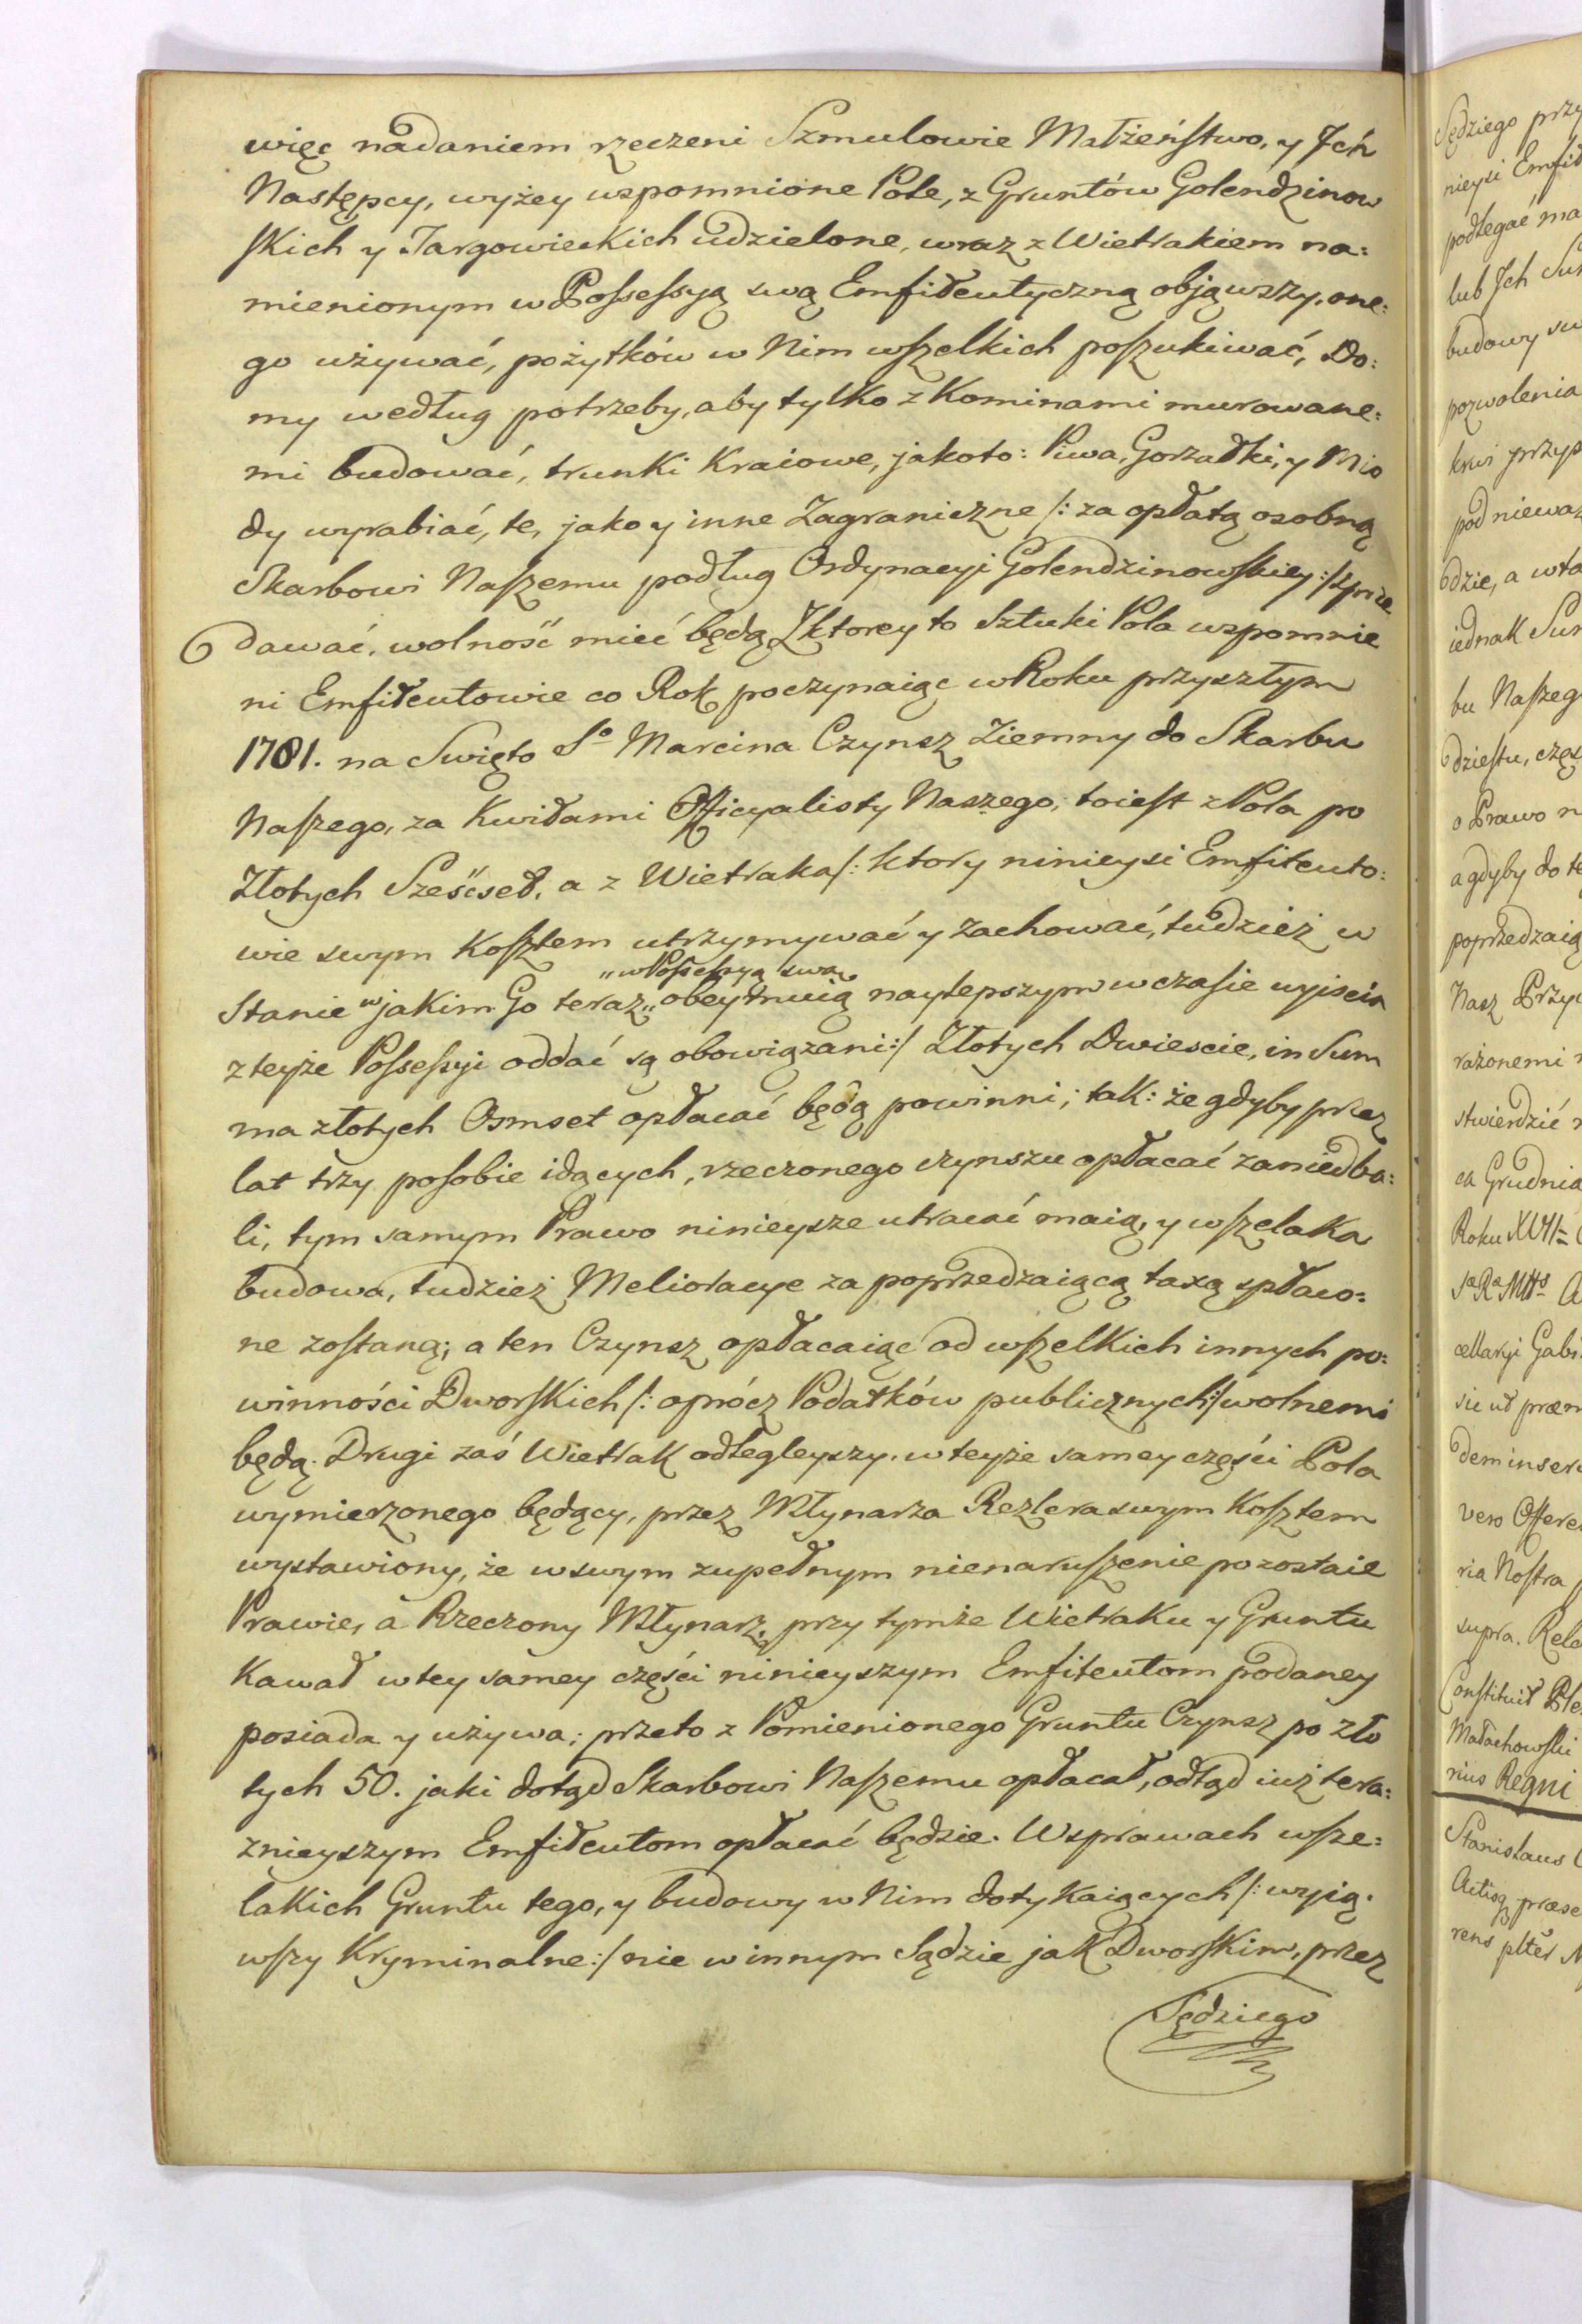 więc nadaniem rzeczeni Szmulowie Małżeństwo, y Jch
Następcy, wyżey wspomnione Pole, z Gruntów Golendzinow
skich y Targowieckich udzielone, wraz z Wietrakiem na:
mienionym w Possessyą swą Emfiteutyczną objąwszy, one:
go używać, pożytków w Nim wszelkich poszukiwać, Do:
my według potrzeby, aby tylko z Kominami murowane:
mi budować, trunki Kraiowe, jakoto: Piwa, Gorzałki, y Mio
dy wyrabiać, te, jako y inne Zagraniczne /: za opłatą osobną
Skarbowi Naszemu podług Ordynacyi Golendzinowskiey :/ sprze
dawać, wolność mieć będą Zktorey to Sztuki Pola wspomnie
ni Emfiteutowie co Rok poczynaiąc w Roku przyszłym
1781. na Swięto So Marcina Czynsz Ziemny do Skarbu
Naszego, za Kwitami Officyalisty Naszego, toiest z Pola po
Złotych Sześćset, a z Wietraka /: ktory ninieysi Emfiteuto:
wie swym Kosztem utrzymywać y zachować, tudzież w
„w Possessyą swą
Stanie w jakim Go teraz „ obeymuią naylepszym w czasie wyiscia
z teyże Possessyi oddać są obowiązani :/ Złotych Dwiescie, in Sum
ma złotych Osmset opłacać będą powinni; tak: że gdyby przez
lat trzy posobie idących, rzeczonego czynszu opłacać zaniedba:
li, tym samym Prawo ninieysze utracać maią, y wszelaka
budowa, tudzież Melioracye za poprzedzaiącą taxą spłaco:
ne zostaną; a ten Czynsz opłacaiąc od wszelkich innych po:
winności Dworskich /: oprócz Podatków publicznych :/ wolnemi
będą. Drugi zaś Wietrak odlegleyszy, w teyże samey części Pola
wymierzonego będący, przez Młynarza Rezlera swym Kosztem
wystawiony, że w swym zupełnym nienaruszenie pozostaie
Prawie, a Rzeczony Młynarz, przy tymże Wietraku y Gruntu
Kawał w tey samey części ninieyszym Emfiteutom podaney
posiada y używa; przeto z Pomienionego Gruntu Czynsz po zło
tych 50. jaki dotąd Skarbowi Naszemu opłacał, odtąd iuż tera:
znieyszym Emfiteutom opłacać będzie. W sprawach wsze:
lakich Gruntu tego, y budowy w Nim dotykaiących /: wyią:
wszy Kryminalne :/ nie w innym Sądzie jak Dworskim, przez
Sędziego
Sędziego przy
nieysi Emfit
podlegać ma
lub Jch Su
budowy sw
pozwolenia
przyp
pod niewaz
dzie, a wta
iednak Sur
bu Naszeg
dziestu, częs
o Prawo n
a gdyby do te
poprzedzaią
Nasz Przy
rażonemi
stwierdzić
ca Grudnia
Roku
cellaryi Gabi
sic ut præm
dem inser
vero Offere
ria Nostra
supra. Rela
Constituit Ple
Małachowski
rius Regni
Stanislaus
præse
rens